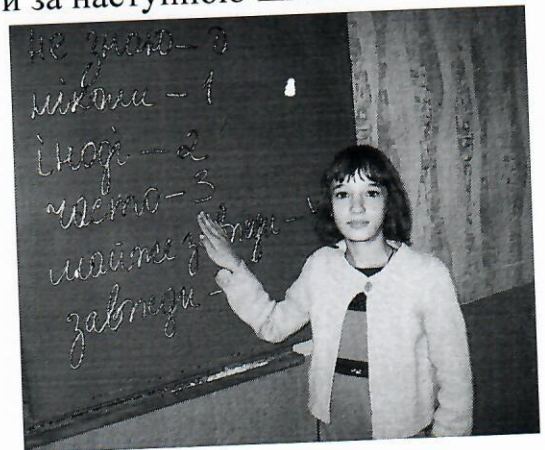 и за наступною
не знаю – 0
ніколи – 1
іноді – 2
часто – 3
майже завжди –
завжди –